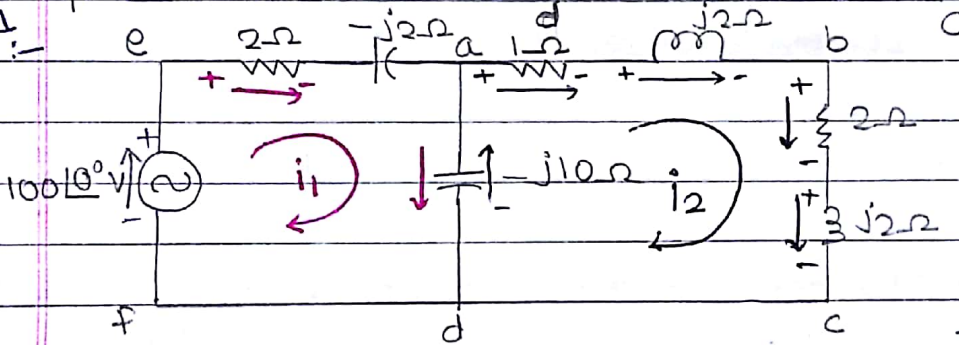 1
:-
e 2Ω -j2Ω a d 1Ω j2Ω b
+ - + - + - +
2Ω
-
+
100∠0° V i₁ -j10Ω i₂
- - +
j2Ω
-
f d c